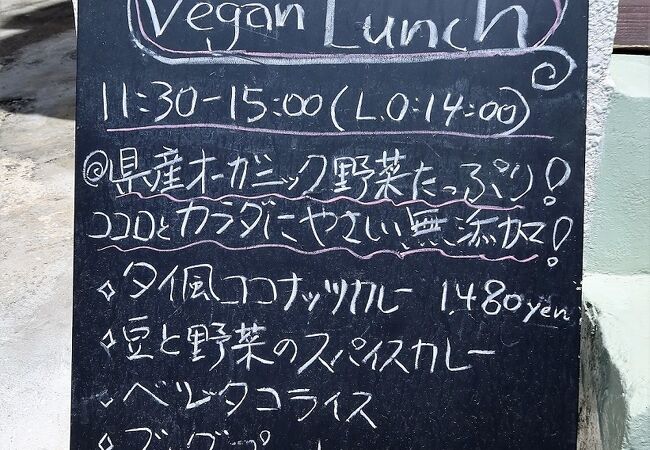 Vegan Lunch
11:30-15:00(L.O:14:00)
◎県産オーガニック野菜たっぷり!
ココロとカラダにやさしい、無添加!
◇タイ風ココナッツカレー 1,480yen
◇豆と野菜のスパイスカレー
◇ベジタコライス